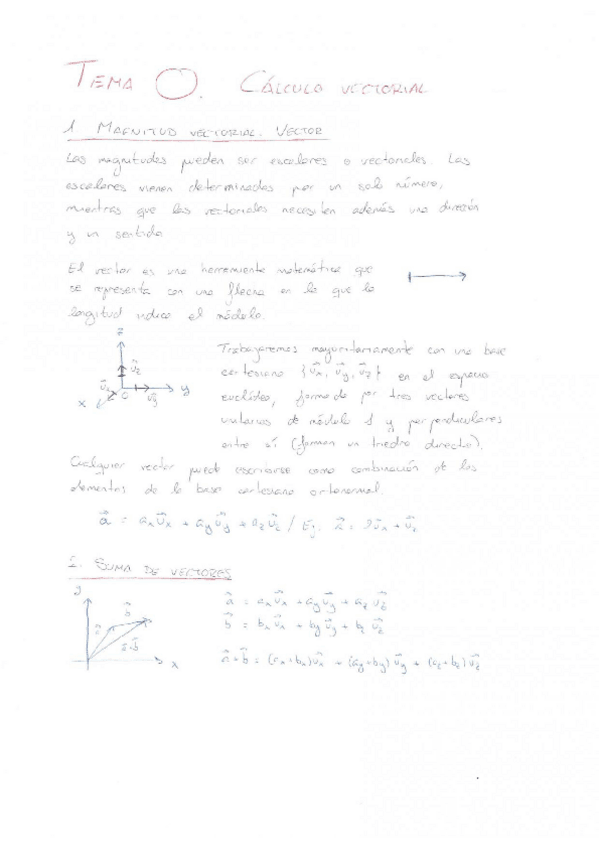 TEMA 0. CÁLCULO VECTORIAL
1 MAGNITUD VECTORIAL. VECTOR
Las magnitudes pueden ser escalares o vectoriales. Las
escalares vienen determinadas por un solo número,
mientras que las vectoriales necesitan además una dirección
y un sentido
El vector es una herramienta matemática que
se representa con una flecha en la que la
longitud indica el módulo.
z
u⃗z
u⃗x
x O u⃗y y
Trabajaremos mayoritariamente con una base
cartesiana {u⃗x, u⃗y, u⃗z} en el espacio
euclídeo, formada por tres vectores
unitarios de módulo 1 y perpendiculares
entre sí (forman un triedro directo).
Cualquier vector puede escribirse como combinación de los
elementos de la base cartesiana ortonormal.
a⃗ = axu⃗x + ayu⃗y + azu⃗z / Ej.
SUMA DE VECTORES
y
b⃗
a⃗
a⃗+b⃗
x
a⃗ = axu⃗x + ayu⃗y + az u⃗z
b⃗ = bxu⃗x + byu⃗y + bz u⃗z
a⃗+b⃗ = (ax+bx)u⃗x + (ay+by)u⃗y + (az+bz)u⃗z